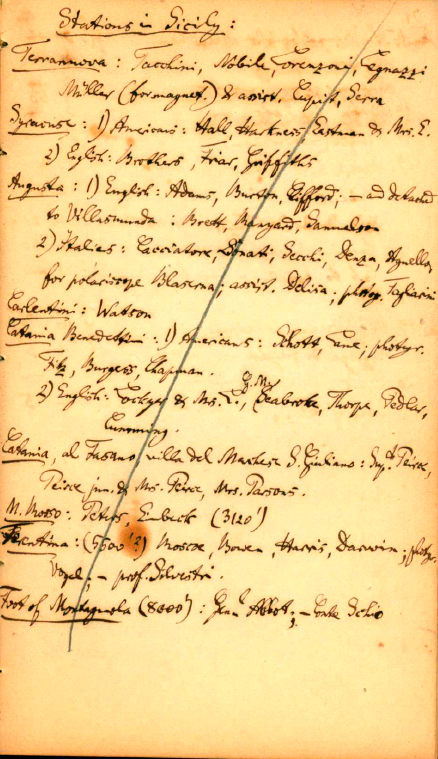 Stations in Sicily:
Terrannova: Tacchini, Nobile, Lorenzoni, Legnazzi
Müller (for magnet.) & assist., Serra
Syracuse: 1) Americans: Hall, Harkness, Eastman & Mrs. E.
2) English: Brothers, Friar, Griffiths
Augusta: 1) English: Adams, Burton, Clifford; – ad detached
to Villasmunda: Brett, Manyard, Samuelson
2) Italies: Cacciatore, Donati, Secchi, Denza, Agnello,
for polariscope Blaserna; assist. Delisa; photogr. Tagliarini
Carlentini: Watson
Catania Benedettini: 1) Americans: Schott, Lane; photogr.
Fitz, Burgess, Chapman.
2) English: Lockyer & Mrs. L., G.M. Seabroke, Thorpe, Pedler,
Cumming.
Catania, al Fasano villa del Marchese S. Giuliano: Supt. Peirce,
Peirce jun. & Mrs. Peirce, Mrs. Parsons.
M. Rosso: Peters, Eimbeck (3120')
(5500'?) Roscoe, Bowen, Harris, Darwin; photgr.
Vogel; – prof. Silvestri.
Foot of Montagnola (8000'): Genl Abbot; – Conte Schio